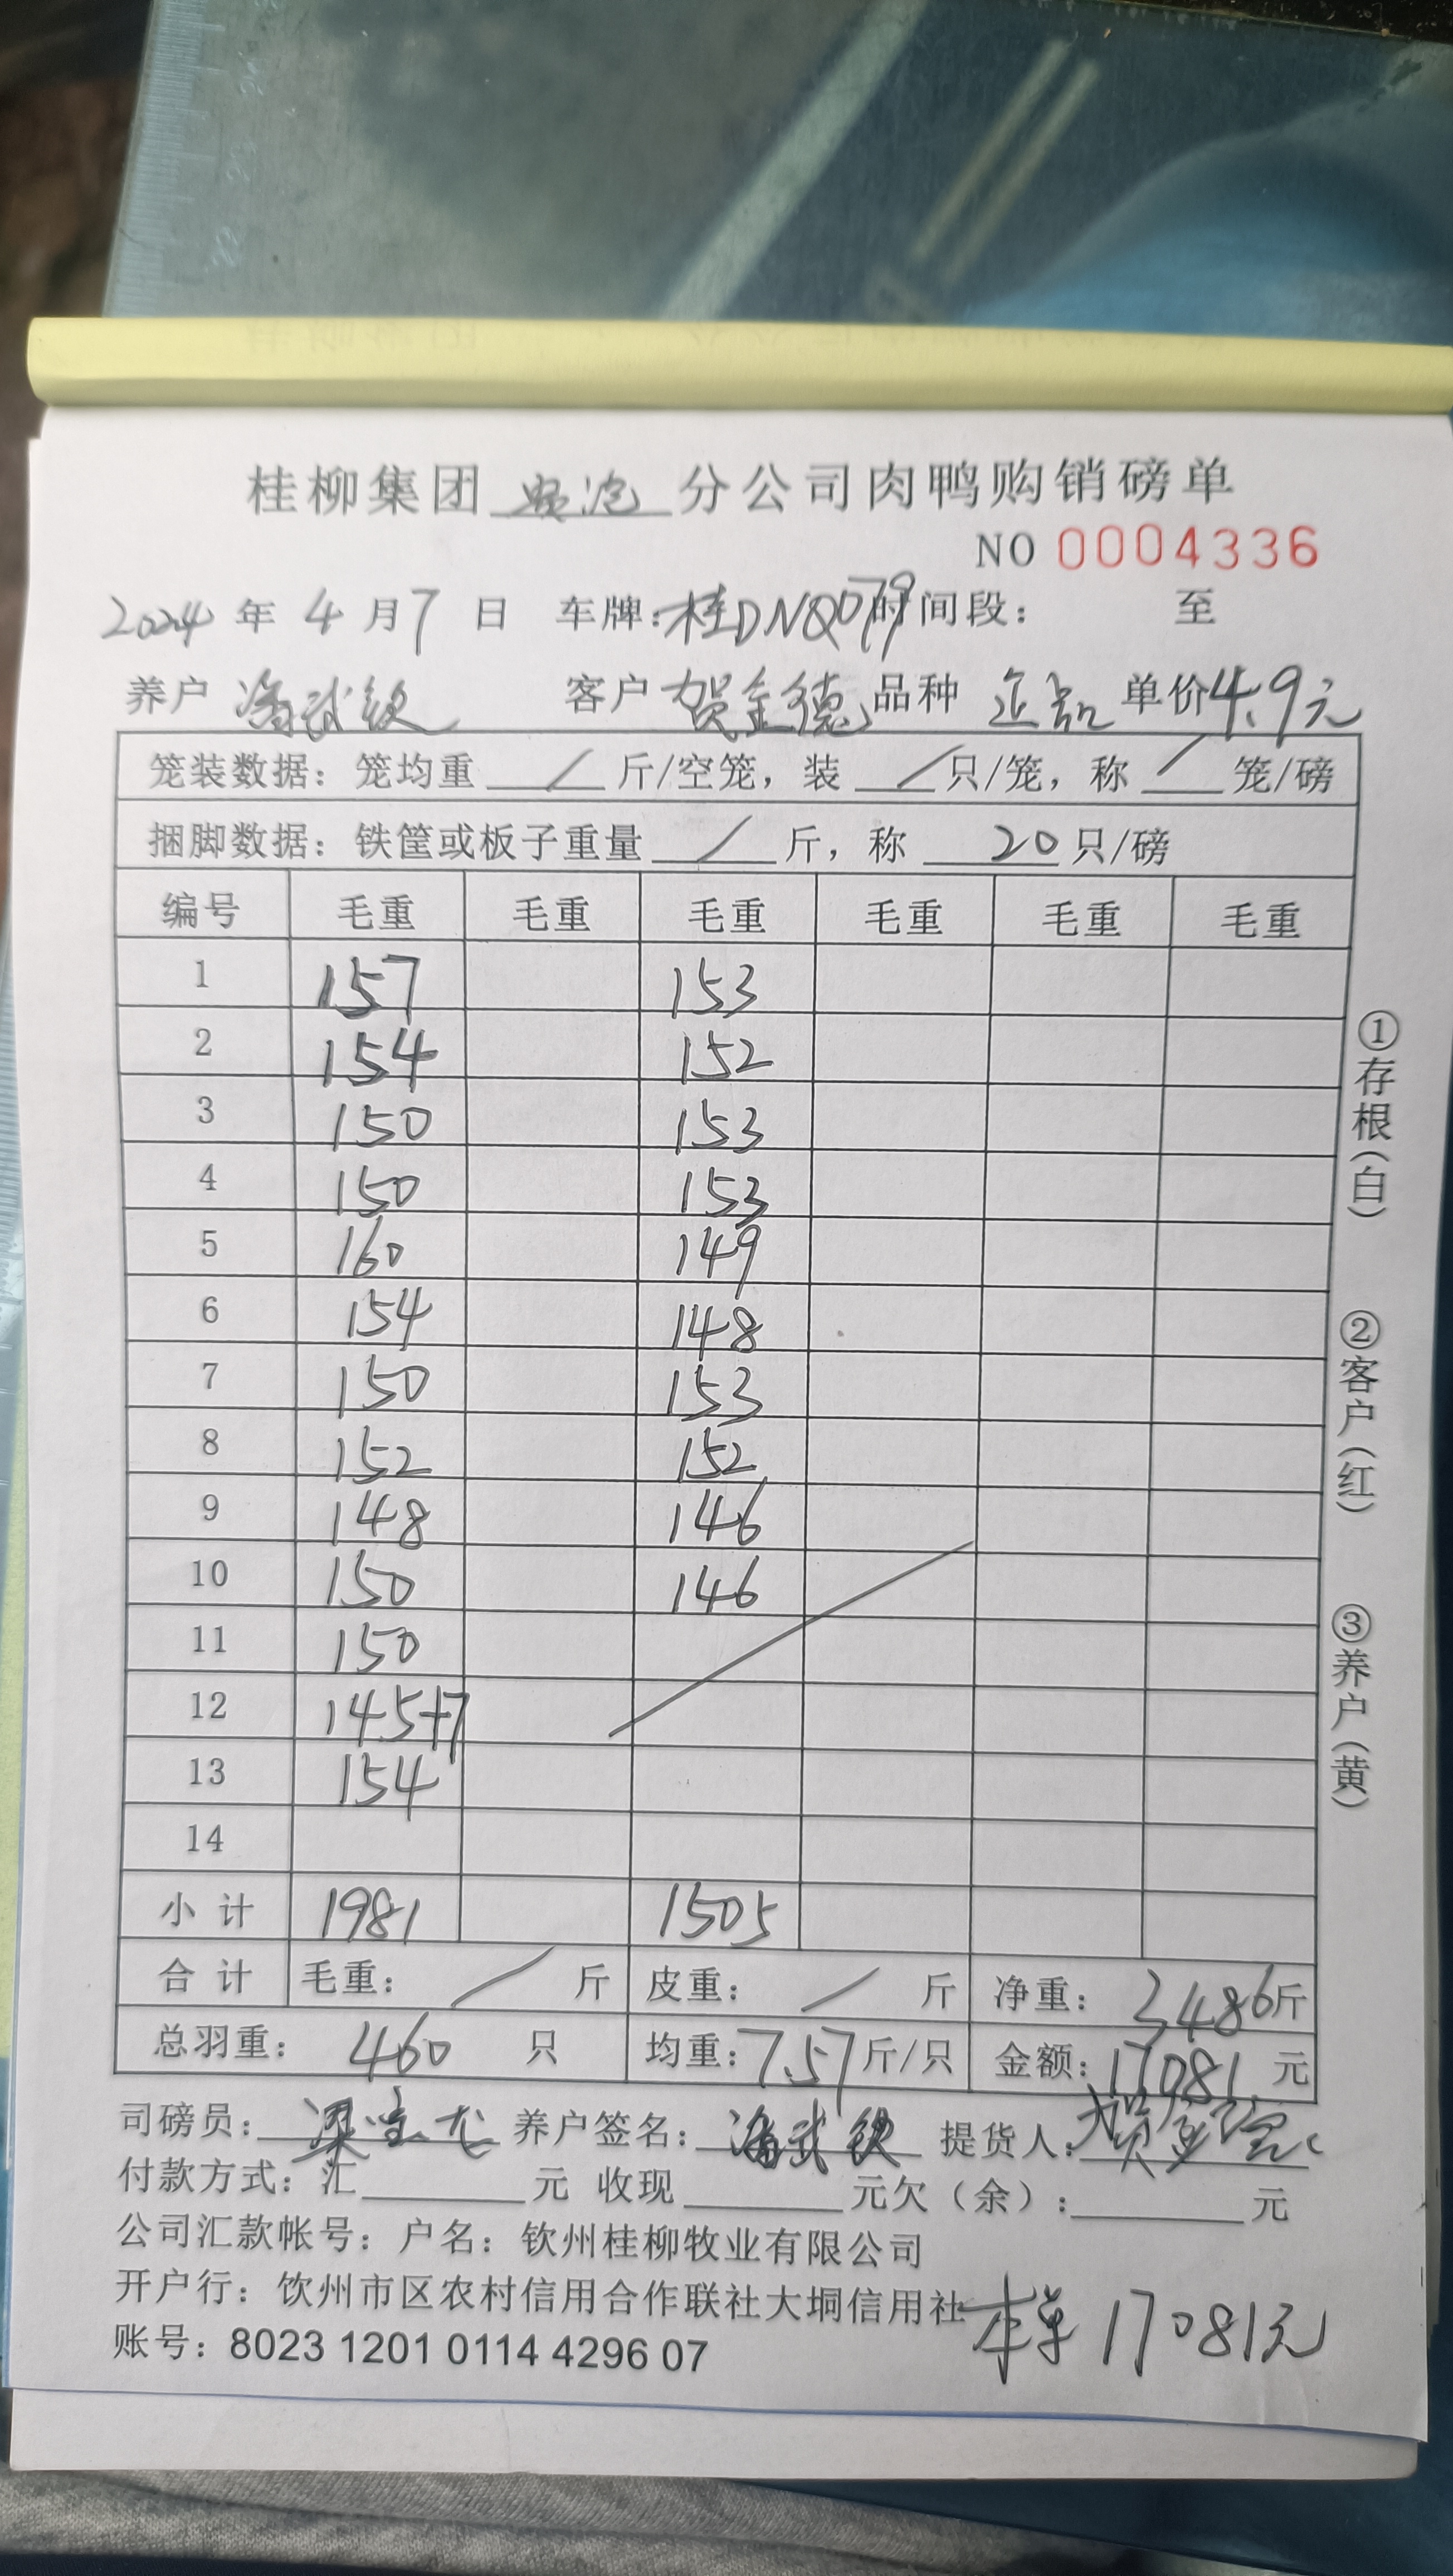 桂柳集团 分公司肉鸭购销磅单
NO 0004336
2024 年 4 月 7 日 车牌：桂DNQ079 时间段： 至
养户 潘武钦 客户 贺金德 品种 正品 单价 4.9元
笼装数据：笼均重 / 斤/空笼，装 / 只/笼，称 / 笼/磅
捆脚数据：铁筐或板子重量 / 斤，称 20 只/磅
编号 毛重 毛重 毛重 毛重 毛重 毛重
1 157 153
2 154 152
3 150 153
4 150 153
5 160 149
6 154 148
7 150 153
8 152 152
9 148 146
10 150 146
11 150
12 145+7
13 154
14
小计 1981 1505
合计 毛重： / 斤 皮重： / 斤 净重： 3486斤
总羽重： 460 只 均重：7.57斤/只 金额：17081 元
司磅员： 养户签名：潘武钦 提货人：
付款方式：汇 元 收现 元欠（余）： 元
公司汇款帐号：户名：钦州桂柳牧业有限公司
开户行：饮州市区农村信用合作联社大垌信用社
账号：8023 1201 0114 4296 07
本车 17081元
①存根（白）
②客户（红）
③养户（黄）